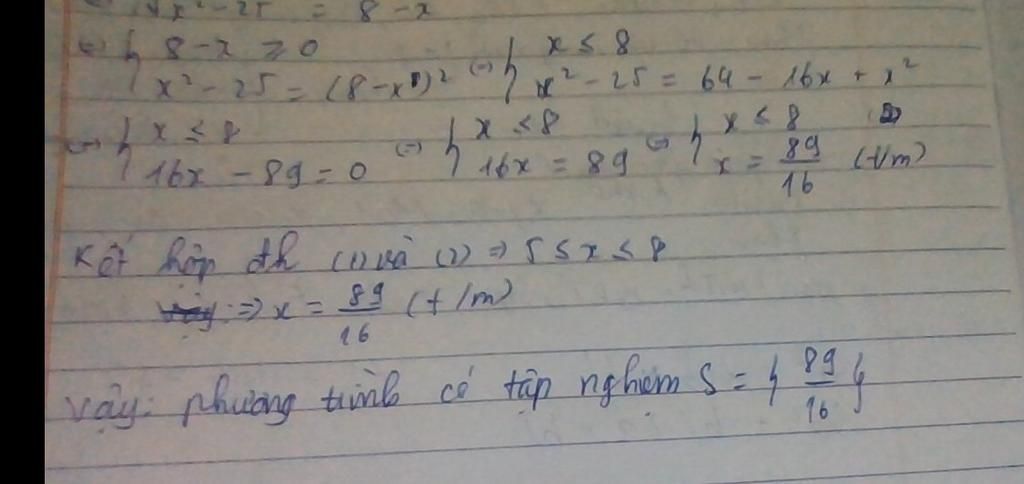 √x² - 25 = 8 - x
⇔ { 8 - x ≥ 0 ⇔ { x ≤ 8
x² - 25 = (8 - x)² x² - 25 = 64 - 16x + x²
⇔ { x ≤ 8 ⇔ { x ≤ 8 ⇔ { x ≤ 8
16x - 89 = 0 16x = 89 x = 89/16 (t/m)
Kết hợp đk (1) và (2) ⇒ 5 ≤ x ≤ 8
⇒ x = 89/16 (t/m)
Vậy: phương trình có tập nghiệm S = { 89/16 }